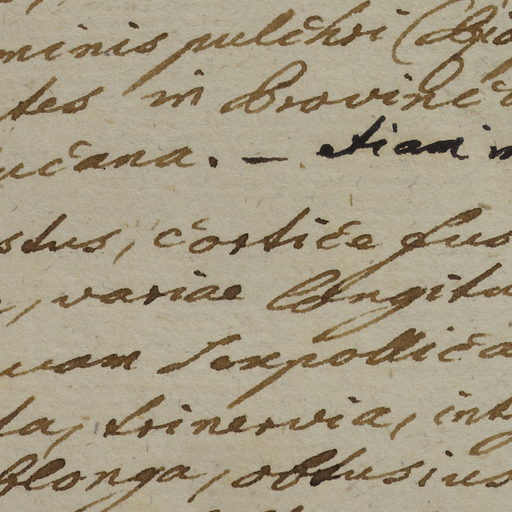 minis pulchri (Obja
tes in Provincia
ucana. — etiam in
stus, cortice fus
, variae longitu
uam sexpollica
ta, trinervia, int
oblonga, obtusius